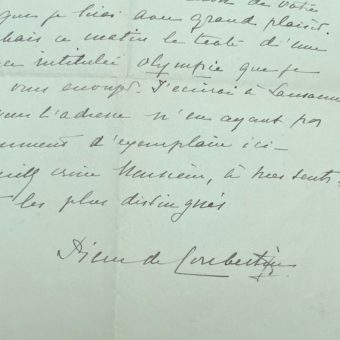 de Votre
que je lirai avec grand plaisir.
mais ce matin le texte d'une
intitulée Olympie que je
vous envoyer. J'écrirai à Lausanne
l'adresse n'en ayant pas
d'exemplaire ici -
croire Monsieur, à mes senti-
les plus distingués
Pierre de Coubertin